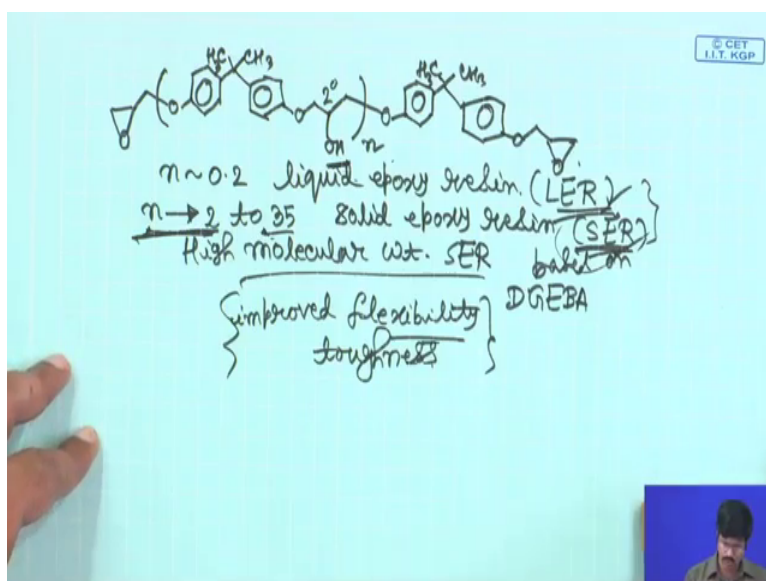 © CET
I.I.T. KGP
H₃C CH₃ H₃C CH₃
2°
O O O O O O
OH n
n ~ 0.2 liquid epoxy resin (LER) ✓
n → 2 to 35 Solid epoxy resin (SER)
High molecular wt. SER based on
DGEBA
improved flexibility
toughness